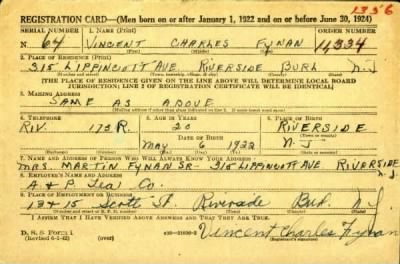 1356
REGISTRATION CARD—(Men born on or after January 1, 1922 and on or before June 30, 1924)
SERIAL NUMBER 1. NAME (Print) ORDER NUMBER
N 64 VINCENT CHARLES FYNAN 11334
(First) (Middle) (Last)
2. PLACE OF RESIDENCE (Print)
315 LIPPINCOTT AVE. RIVERSIDE BURL N.J.
(Number and street) (Town, township, village, or city) (County) (State)
[THE PLACE OF RESIDENCE GIVEN ON THE LINE ABOVE WILL DETERMINE LOCAL BOARD
JURISDICTION; LINE 2 OF REGISTRATION CERTIFICATE WILL BE IDENTICAL]
3. MAILING ADDRESS
SAME AS ABOVE
4. TELEPHONE 5. AGE IN YEARS 6. PLACE OF BIRTH
RIV. 173 R. 20 RIVERSIDE
DATE OF BIRTH
May 6 1922 N.J.
7. NAME AND ADDRESS OF PERSON WHO WILL ALWAYS KNOW YOUR ADDRESS
MRS. MARTIN FYNAN SR- 315 LIPPINCOTT AVE RIVERSIDE N.J.
8. EMPLOYER'S NAME AND ADDRESS
A & P Tea Co.
9. PLACE OF EMPLOYMENT OR BUSINESS
13 & 15 Scott St. Riverside Bur. N.J.
I AFFIRM THAT I HAVE VERIFIED ABOVE ANSWERS AND THAT THEY ARE TRUE.
D. S. S. Form 1
(Revised 6-1-42) (over) Vincent Charles Fynan
(Registrant's signature)